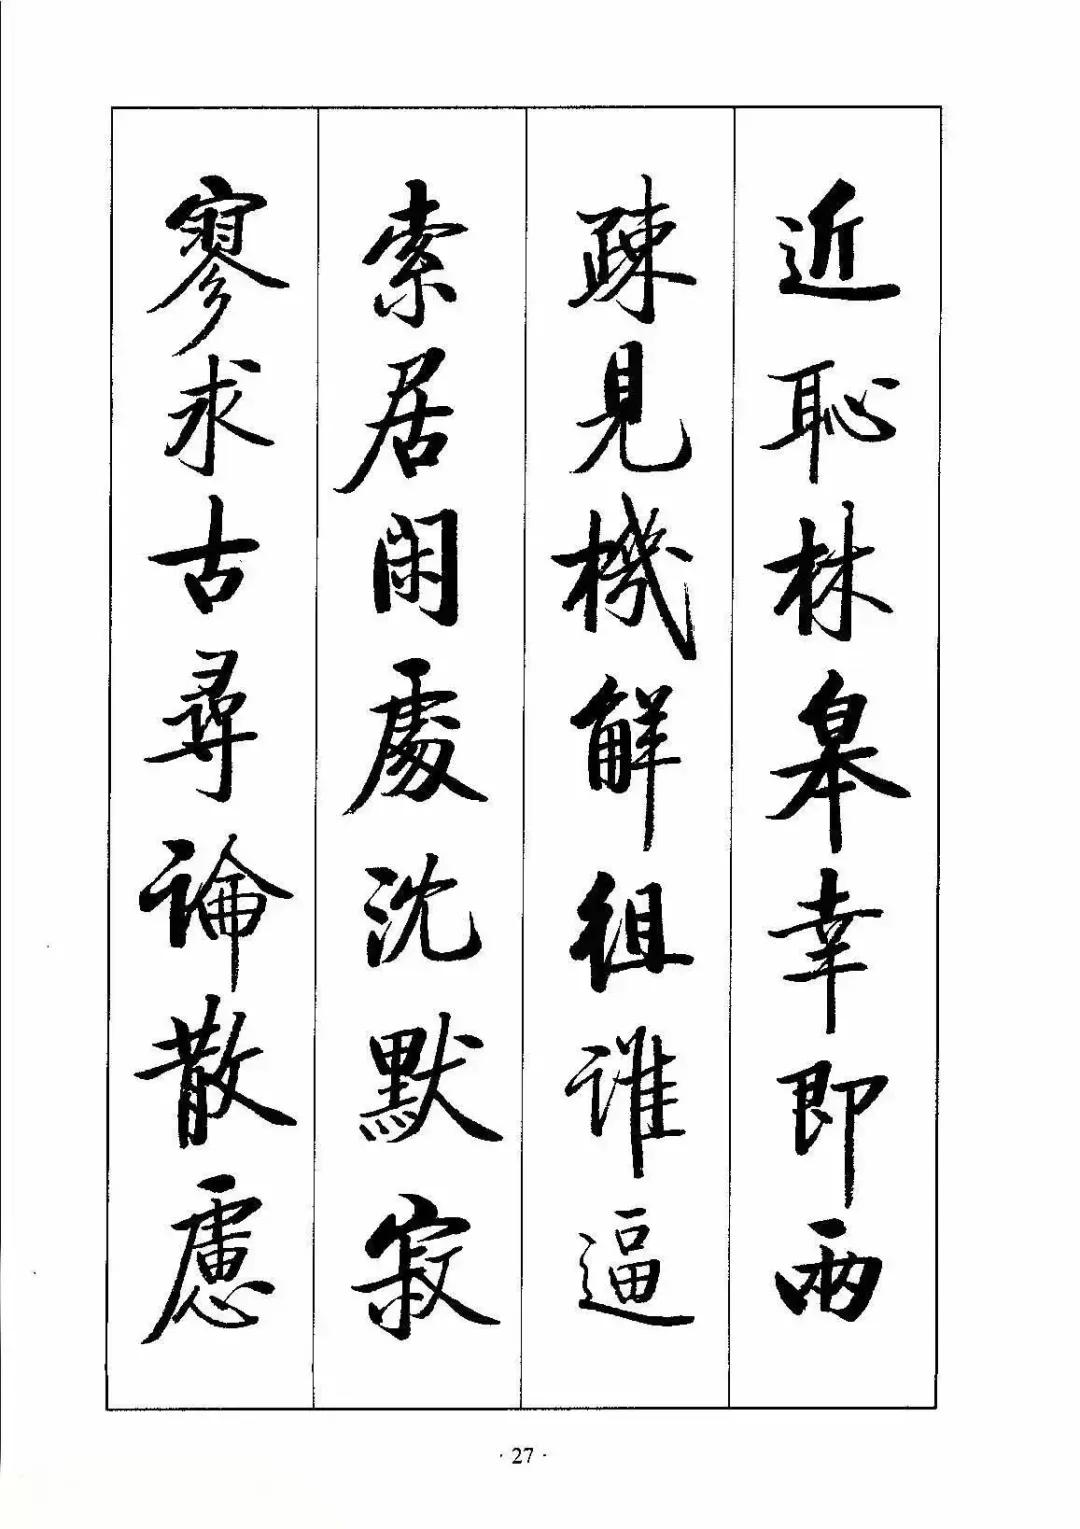 近恥林皋幸即兩
疎見機解組誰逼
索居閑處沈默寂
寥求古尋論散慮
· 27 ·